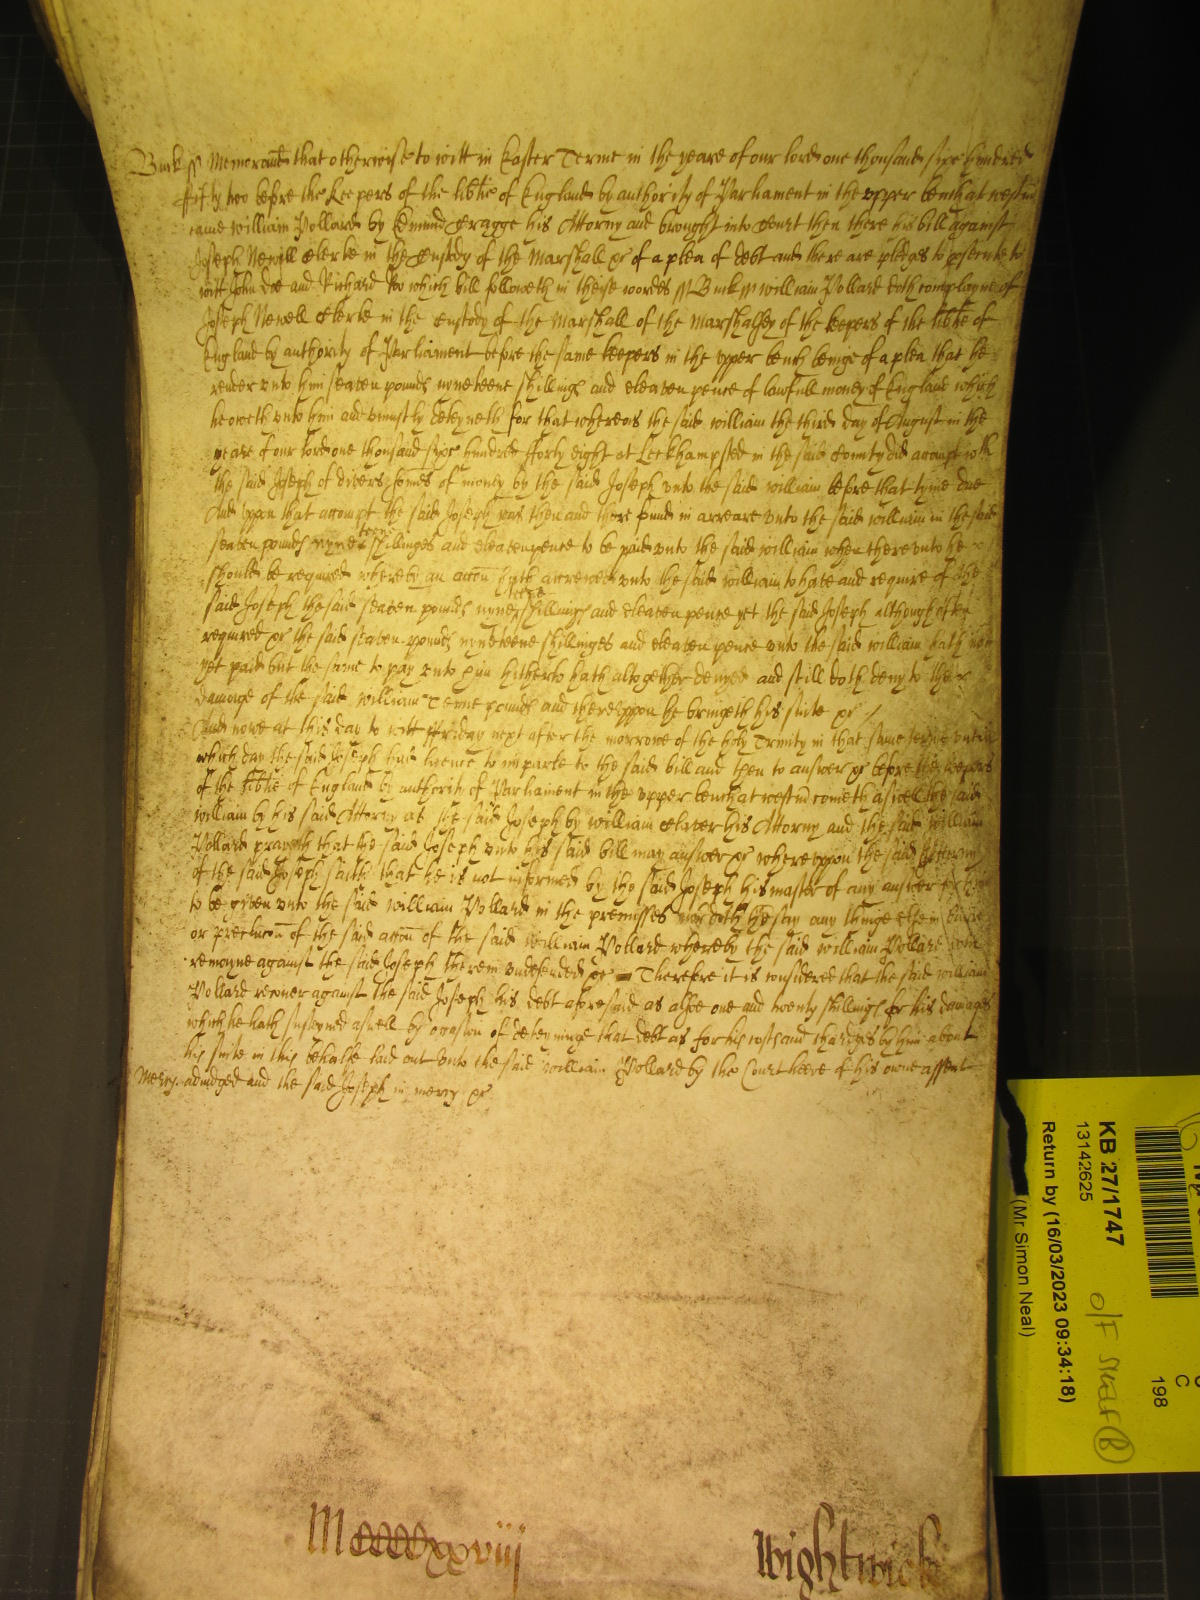 Buck ss Memorand that otherwise to witt in Easter Terme in the yeare of our lord one thousand sixe hundred
fifty two before the Keepers of the lib'tie of England by authority of Parliament in the upper bench at westm'
came william Vollard by Edmund Cragge his Attorny and brought into Court then there his bill against
Joseph Newell Clerke in the Custody of the Marshall &c of a plea of debt and there are pledges to p'secute to
witt John Doe and Richard Roo which bill followeth in theise wordes ss Buck ss william Vollard doth complayne of
Joseph Newell Clerke in the Custody of the Marshall of the Marshalsey of the keepers of the lib'tie of
England by authority of Parliament before the same keepers in the upper bench beinge of a plea that he
render unto him seaven pounds nyneteene shillings and eleaven pence of lawfull money of England which
he oweth unto him and uniustly deteyneth for that whereas the said william the third day of August in the
yeare of our lord one thousand sixe hundred fforty eight at Leckhampsted in the said County did accompt wth
the said Joseph of divers somes of money by the said Joseph unto the said william before that tyme due
And uppon that accompt the said Joseph was then and there found in arreare unto the said william in the said
seaven pounds nyneteene shillinges and eleaven pence to be paid unto the said william when thereunto he
should be required whereby an accon hath accrewed unto the said william to have and require of the
said Joseph the said seaven pounds nyneteene shillings and eleaven pence yet the said Joseph although often
required &c the said seaven pounds nyneteene shillinges and eleaven pence unto the said william hath not
yet paid but the same to pay unto him hitherto hath altogether denyed and still doth deny to the
damage of the said william Tenne pounds and thereuppon he bringeth his suite &c /
And nowe at this day to witt ffriday next after the morrowe of the holy Trinity in that same terme untill
which day the said Joseph had licence to imparle to the said bill and then to answer &c before the keepers
of the lib'tie of England by authority of Parliament in the upper bench at westm' cometh aswell the said
william by his said Attorny as the said Joseph by william Clater his Attorny and the said william
Vollard prayeth that the said Joseph unto his said bill may answer &c whereuppon the said Attorny
of the said Joseph saith that he is not informed by the said Joseph his master of any answer
to be given unto the said william Vollard in the premisses nor doth he say any thinge else in barre
or preclucon of the said accon of the said william Vollard whereby the said william Vollard
remayne against the said Joseph therein undefended &c Therefore it is considered that the said william
Vollard recover against the said Joseph his debt aforesaid as alsoe one and twenty shillings for his damages
which he hath susteyned aswell by occasion of deteyninge that debt as for his costs and chardges by him about
his suite in this behalfe laid out unto the said william Vollard by the Court heere of his owne assent
Mercy. adiudged and the said Joseph in mercy &c
Mccccxxviij Wightwick
KB 27/1747
13142625
Return by (16/03/2023 09:34:18)
(Mr Simon Neal)
C
198